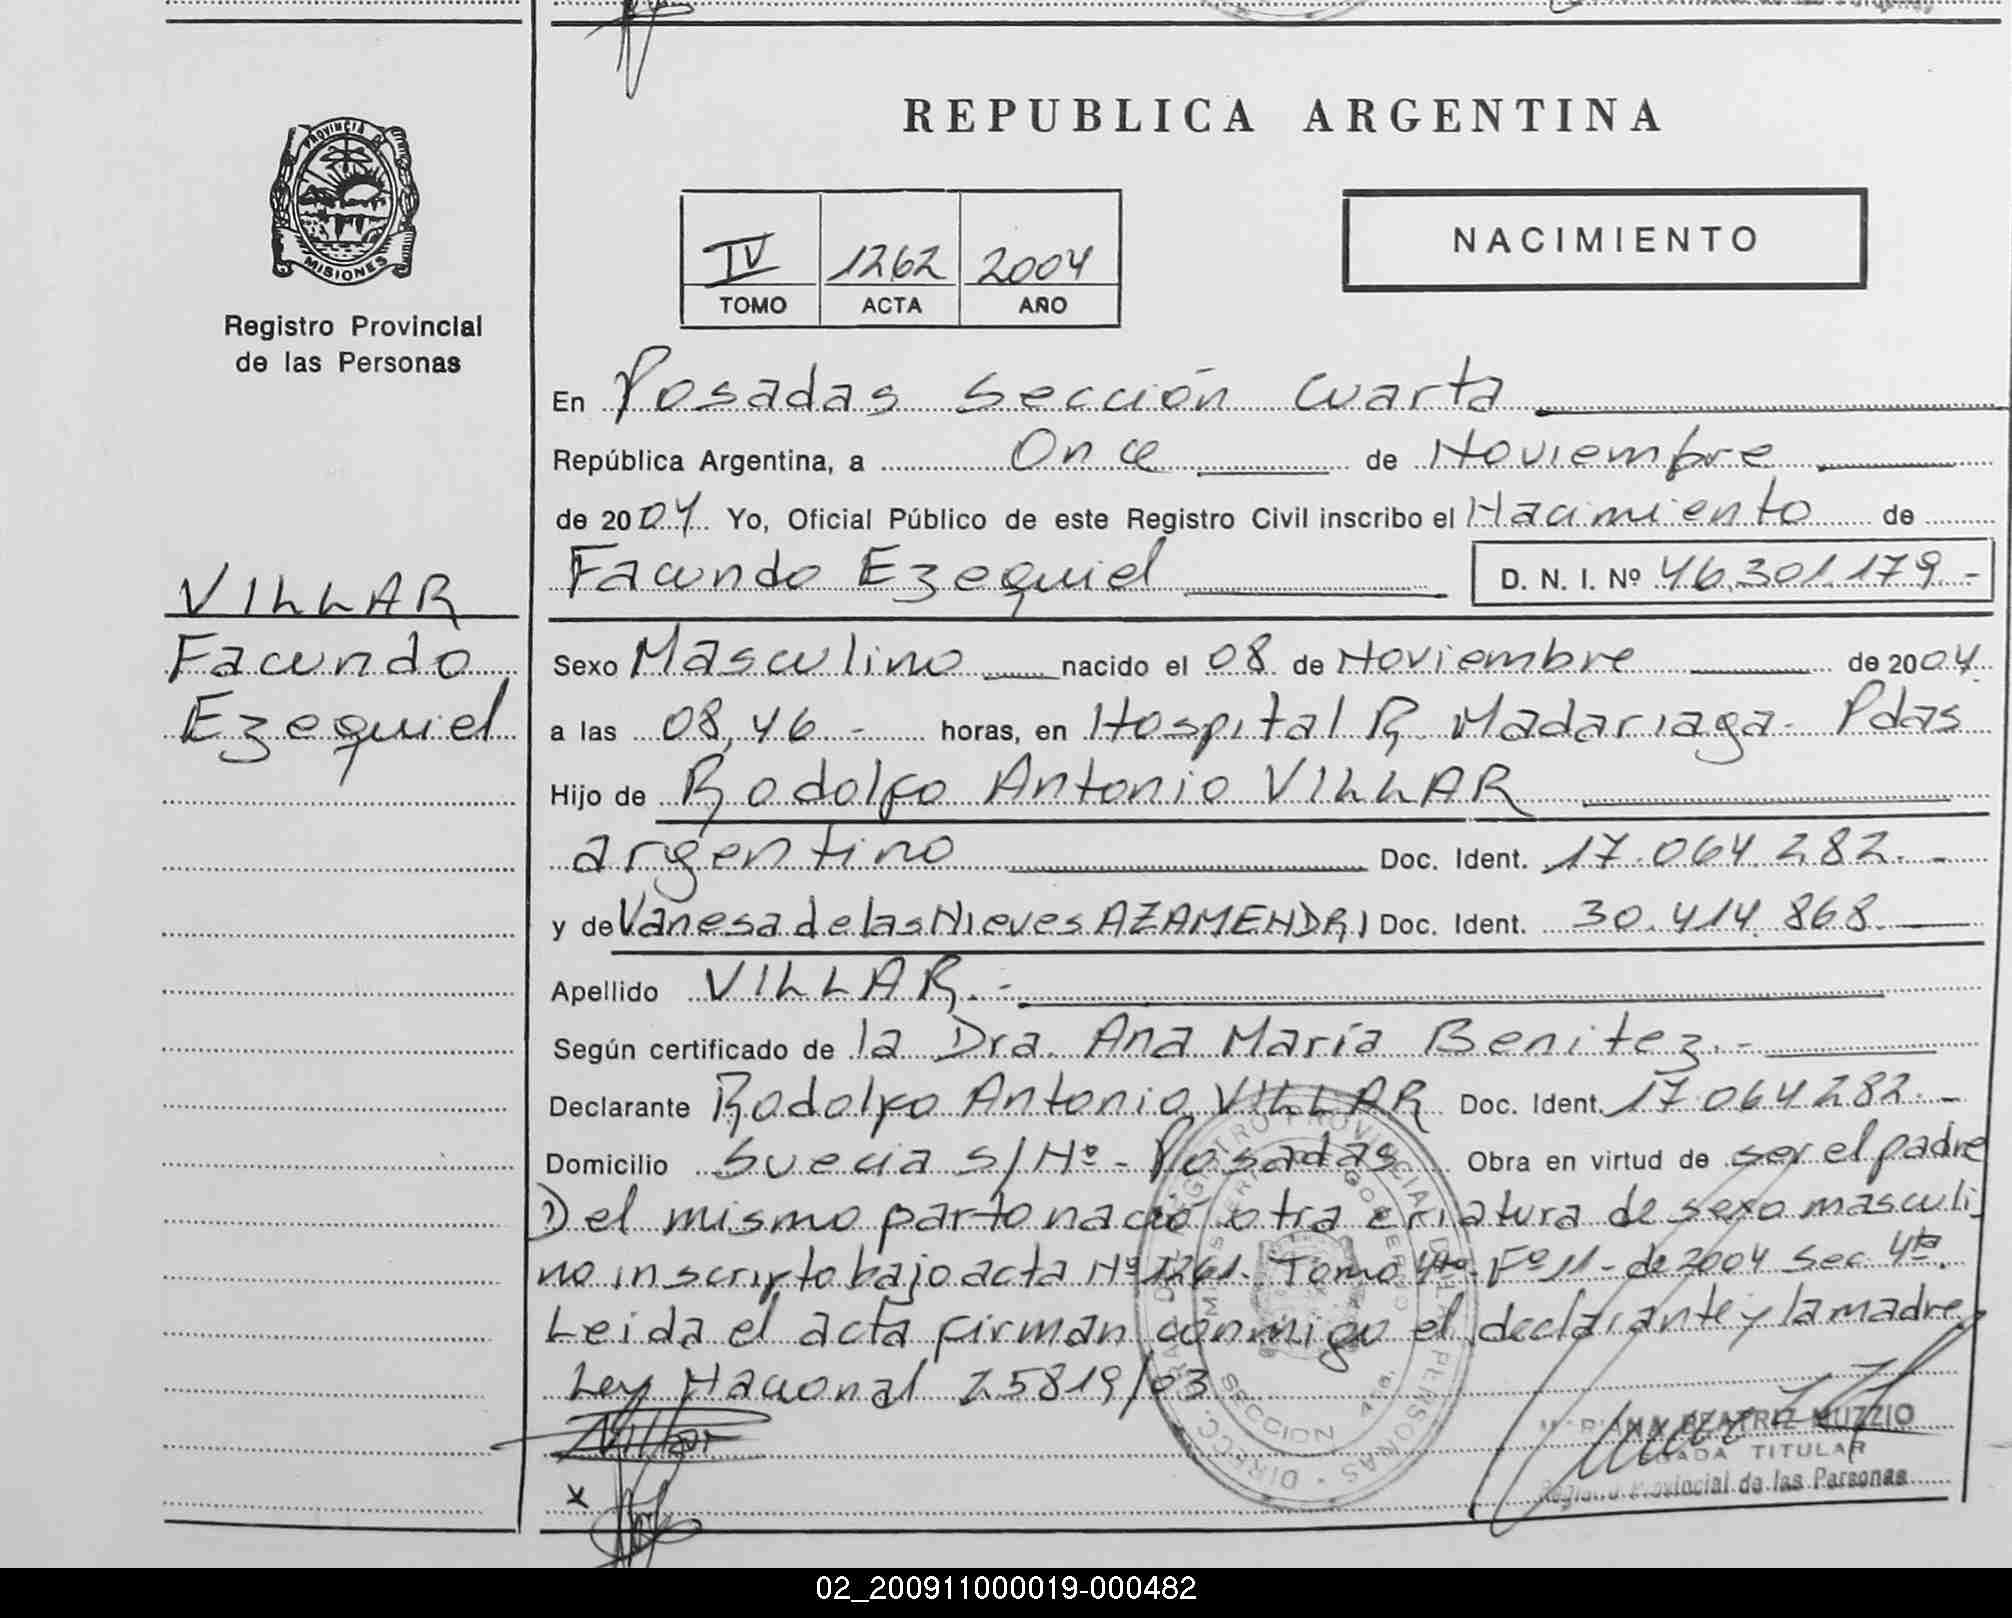 REPUBLICA ARGENTINA
PROVINCIA DE
MISIONES
Registro Provincial
de las Personas
IV 1262 2004
TOMO ACTA AÑO
NACIMIENTO
En Posadas Sección Cuarta
República Argentina, a Once de Noviembre
de 2004 Yo, Oficial Público de este Registro Civil inscribo el Nacimiento de
Facundo Ezequiel D. N. I. Nº 46.301.179.-
VILLAR
Facundo
Ezequiel
Sexo Masculino nacido el 08 de Noviembre de 2004.
a las 08,46 - horas, en Hospital R. Madariaga- Pdas
Hijo de Rodolfo Antonio VILLAR
argentino Doc. Ident. 17.064.282.-
y de Vanesa de las Nieves AZAMENDRI Doc. Ident. 30.414.868.
Apellido VILLAR.-
Según certificado de la Dra. Ana María Benitez.-
Declarante Rodolfo Antonio VILLAR Doc. Ident. 17.064.282.-
Domicilio Suecia s/Nº- Posadas Obra en virtud de ser el padre
Del mismo parto nació otra criatura de sexo masculi
no inscripto bajo acta Nº 1261- Tomo 4to- Fº 11- de 2004 Sec. 4ta.
Leida el acta firman conmigo el declarante y la madre.
Ley Nacional 25819/03
Villar
x
DIRECC. GRAL. DEL REGISTRO PROVINCIAL DE LAS PERSONAS
MINISTERIO DE GOBIERNO
SECCION 4ta.
BEATRIZ MUZZIO
TITULAR
Registro Provincial de las Personas
02_200911000019-000482